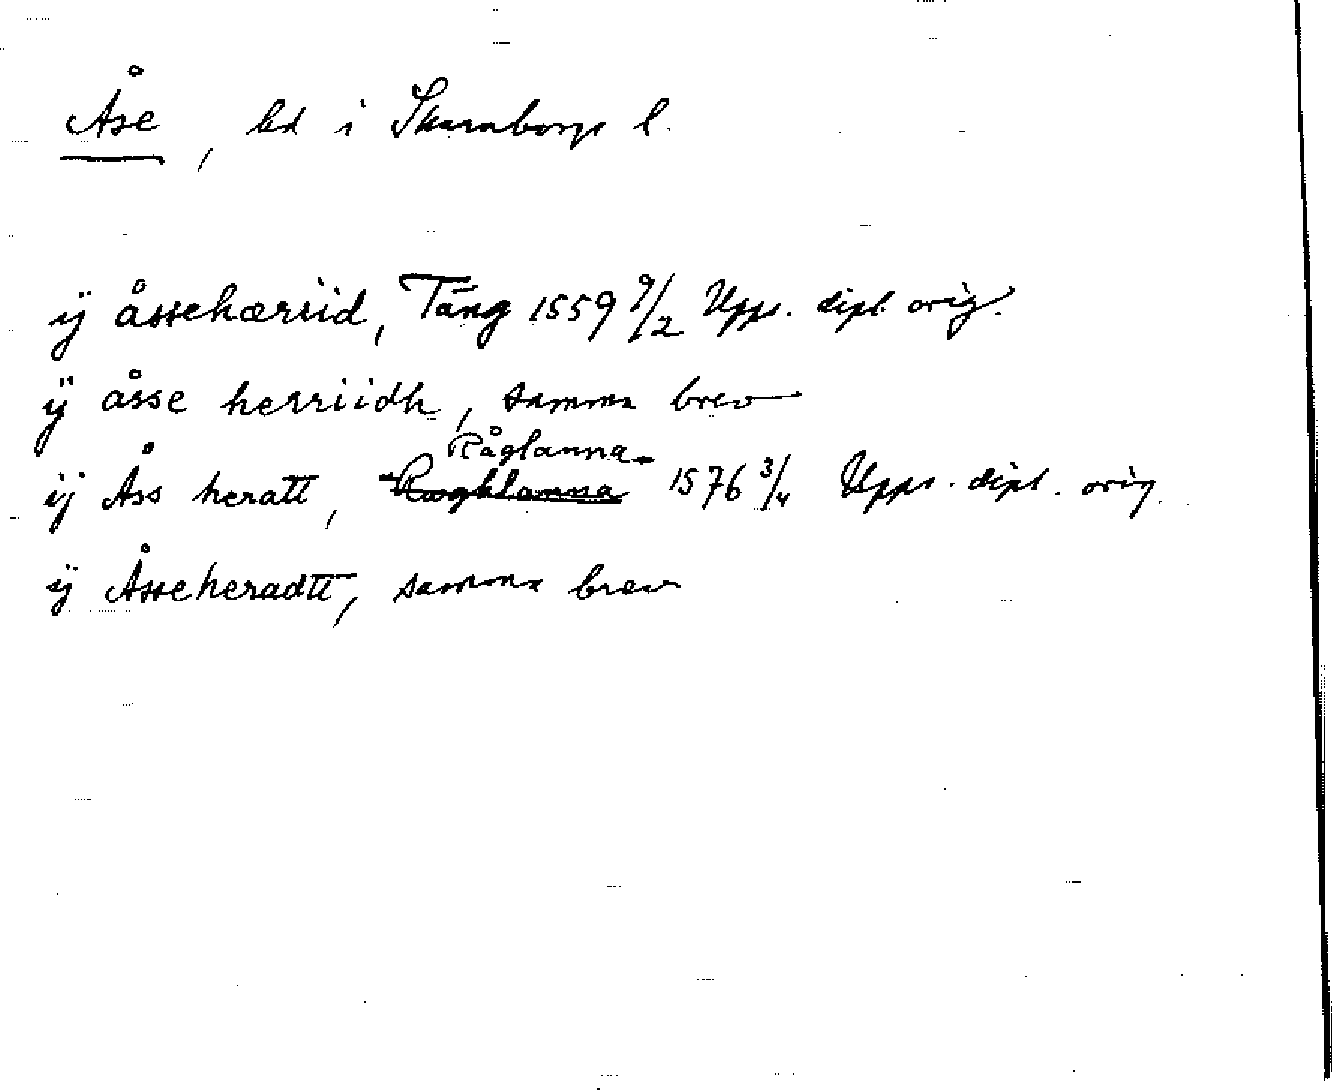 Åse, hd i Skaraborgs l.
ÿ åssehærrid, Tång 1559 9/2 Upps. dipl. orig.
ÿ åsse herriidh, samma brev
Råglanna
ÿ Åss heratt, Rogklanna 1576 3/4 Upps. dipl. orig.
ÿ Åsseheradtt, samma brev